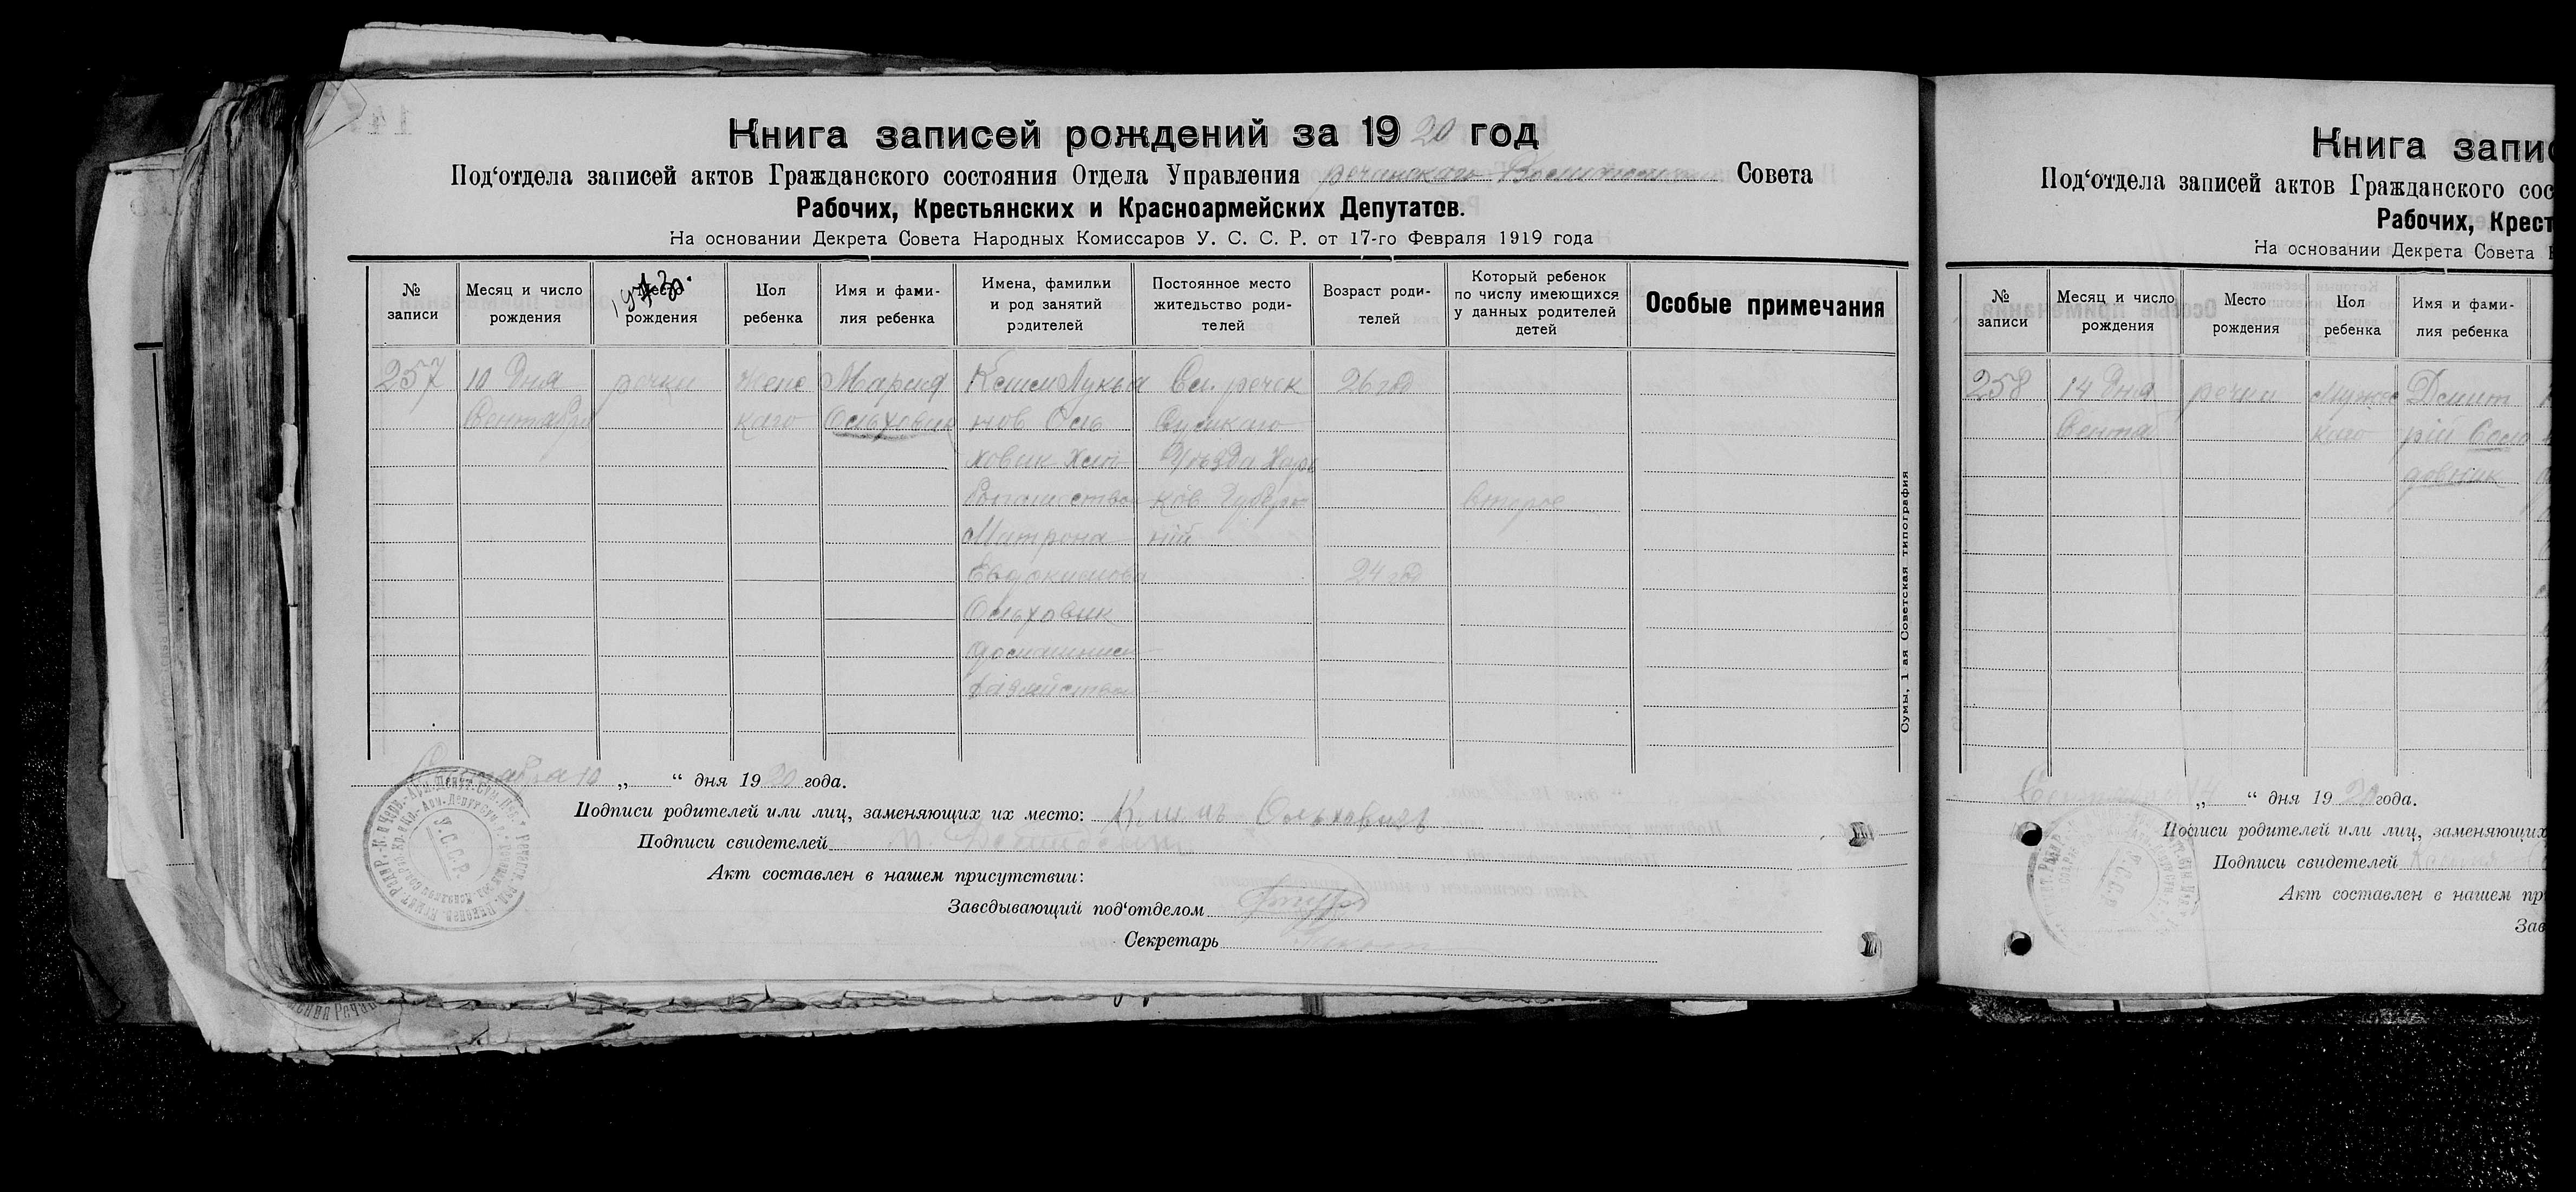 Книга записей рождений за 1920 год
Под‘отдела записей актов Гражданского состояния Отдела Управления речанского Совета
Рабочих, Крестьянских и Красноармейских Депутатов.
На основании Декрета Совета Народных Комиссаров У. С. С. Р. от 17-го Февраля 1919 года
№ записи
Месяц и число рождения
Место рождения
Пол ребенка
Имя и фами-
лия ребенка
Имена, фамилки
и род занятий
родителей
Постоянное место
жительство роди-
телей
Возраст роди-
телей
Который ребенок
по числу имеющихся
у данных родителей
детей
Особые примечания
257
10 дня
Сентября
речки
Женс
каго
Мария
Ольховик
Клим Лукья
нов Оль
ховик
Матрона
Евдокимова
Ольховик
домашним
Сел. речек
Сумскаго
Уѣзда Харь
ков. Губерн
ній
26 год
24 год
второе
Сентября 10 „ “ дня 1920 года.
Подписи родителей или лиц, заменяющих их место: Климъ Ольховикъ
Подписи свидетелей
Акт составлен в нашем присутствии:
Заведывающий под‘отделом
Секретарь
У.С.С.Р.
Сумы, 1 ая Советская типография
Книга запис
Под‘отдела записей актов Гражданского сос
Рабочих, Крест
На основании Декрета Совета
№ записи
Месяц и число
рождения
Место
рождения
Пол
ребенка
Имя и фами-
лия ребенка
258
14 дня
Сентя
речки
Мужес
каго
Дмит
рій
„ “ дня 1920 года.
Подписи родителей или лиц, заменяющих
Подписи свидетелей
Акт составлен в нашем пр
Зав